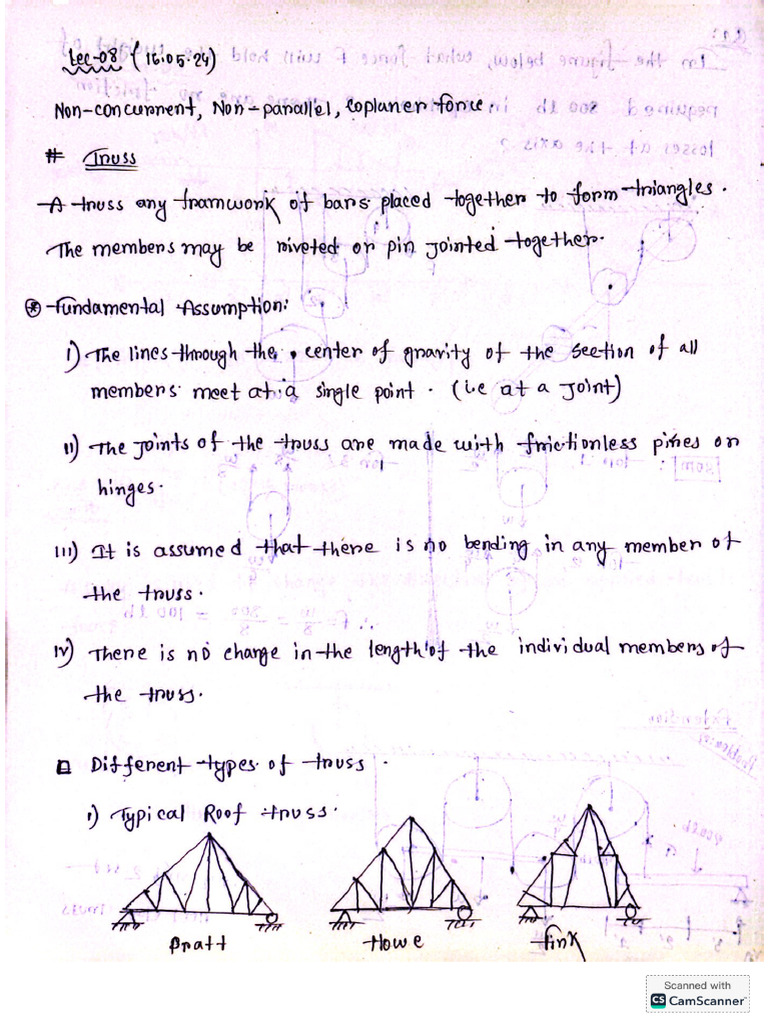 Lec-08 (16.05.24)
Non-concurrent, Non-parallel, coplaner force.
# Truss
A truss any framwork of bars placed together to form triangles.
The members may be riveted or pin jointed together.
* Fundamental Assumption:
i) The lines through the center of gravity of the section of all
members meet at a single point. (i.e at a joint)
ii) The joints of the truss are made with frictionless pines or
hinges.
iii) It is assumed that there is no bending in any member of
the truss.
iv) There is no change in the length of the individual members of
the truss.
Different types of truss.
i) Typical Roof truss.
Pratt Howe Fink
Scanned with
CS CamScanner